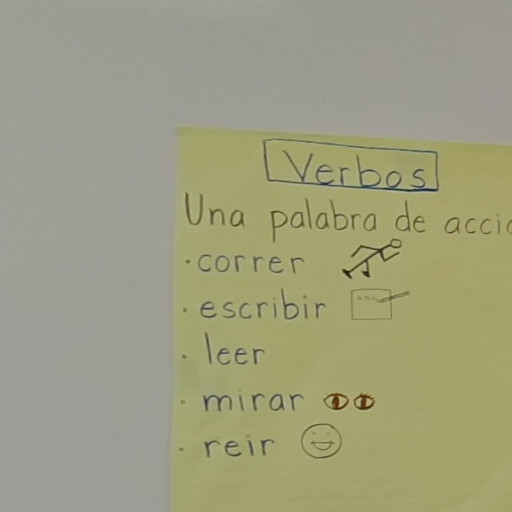 Verbos
Una palabra de acció
· correr
· escribir
· leer
· mirar
· reir